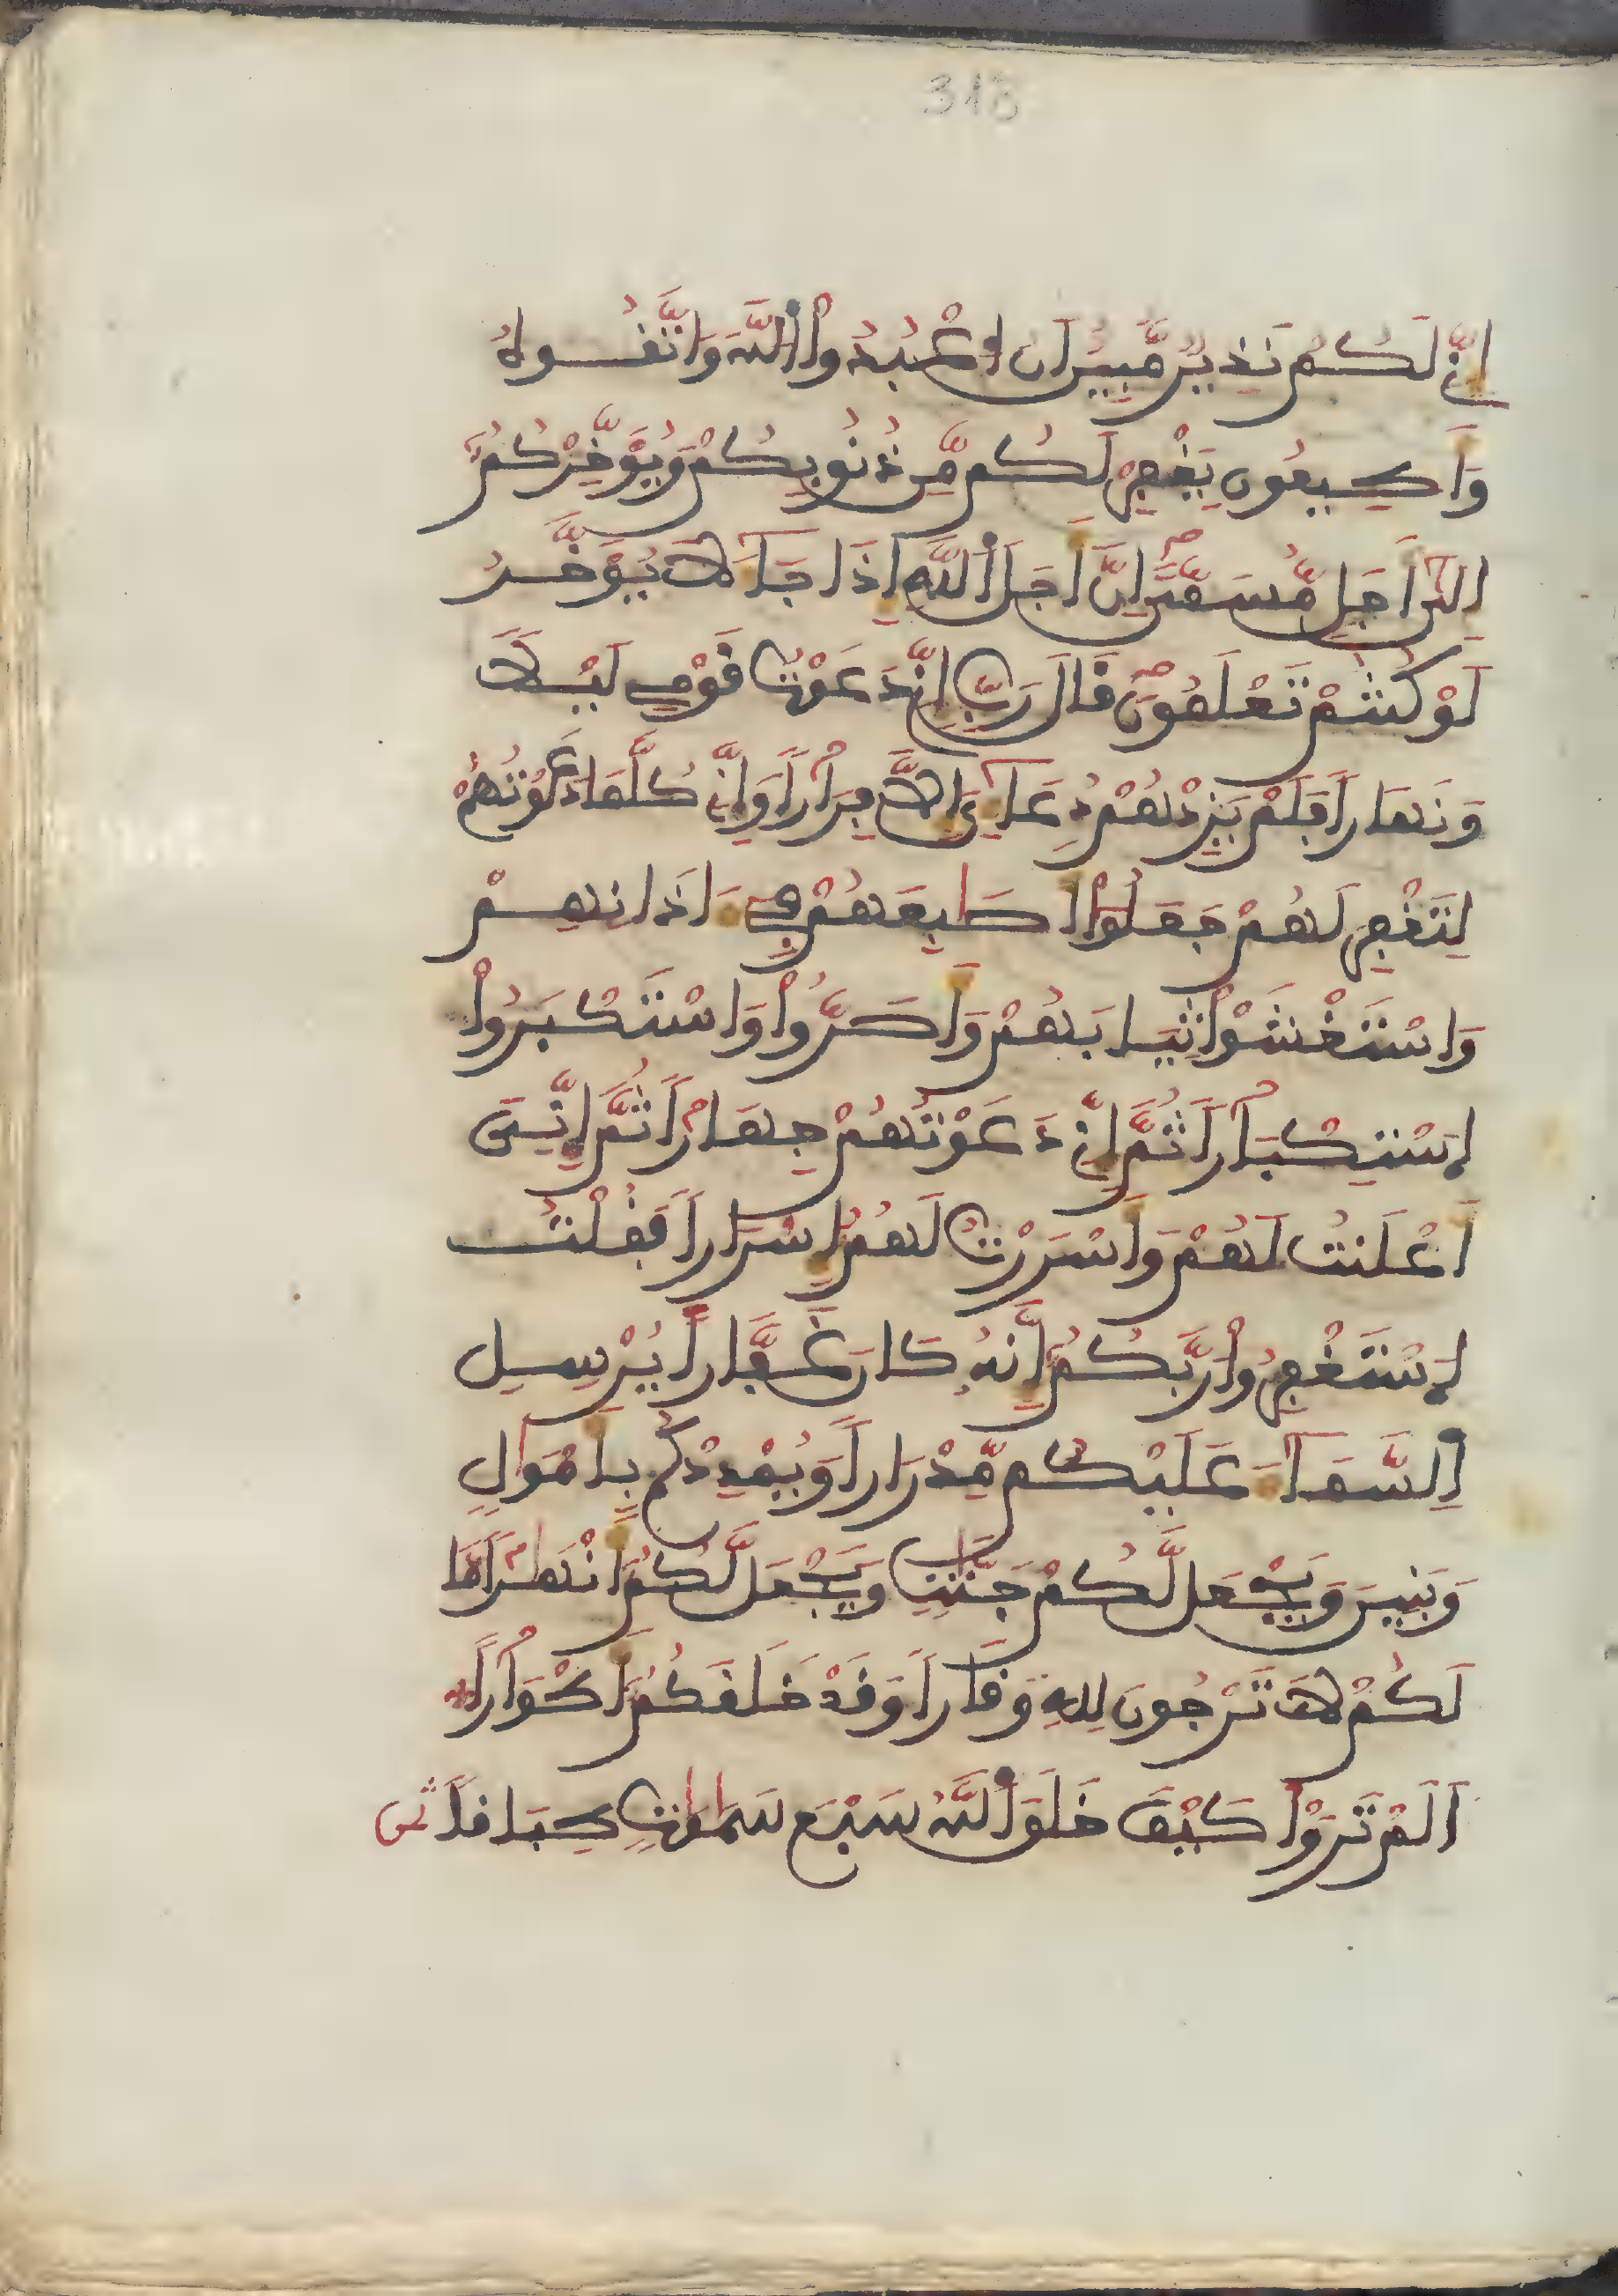 318
إِنِّے لَكُمْ نَذِيرٌ مُّبِينٌ اَنُ اُعْبُدُواْ اُللَّهَ وَاتَّقُوهُ
وَأَطِيعُونِ يَغْفِرْ لَكُم مِّن ذُنُوبِكُمْ وَيُؤَخِّرْكُمُۥٓ
إِلَىٰٓ أَجَلٖ مُّسَمًّى اِنَّ أَجَلَ اَللَّهِ إِذَا جَآءَ لَا يُؤَخَّرُ
لَوْ كُنتُمْ تَعْلَمُونَ قَالَ رَبِّ إِنِّے دَعَوْتُ قَوْمِے لَيْلاٗ
وَنَهَاراٗ فَلَمْ يَزِدْهُمْ دُعَآءِيَ إِلَّا فِرَاراٗ وَإِنِّے كُلَّمَا دَعَوْتُهُمْ
لِتَغْفِرَ لَهُمْ جَعَلُوٓاْ أَصَٰبِعَهُمْ فِےٓ ءَاذَانِهِمْ
وَاسْتَغْشَوْاْ ثِيَابَهُمْ وَأَصَرُّواْ وَاسْتَكْبَرُواْ
اُسْتِكْبَاراٗ ثُمَّ إِنِّے دَعَوْتُهُمْ جِهَاراٗ ثُمَّ إِنِّيَ
أَعْلَنتُ لَهُمْ وَأَسْرَرْتُ لَهُمُۥٓ إِسْرَاراٗ فَقُلْتُ
اُسْتَغْفِرُواْ رَبَّكُمُۥٓ إِنَّهُۥ كَانَ غَفَّاراٗ يُرْسِلِ
اِلسَّمَآءَ عَلَيْكُم مِّدْرَاراٗ وَيُمْدِدْكُم بِأَمْوَٰلٖ
وَبَنِينَ وَيَجْعَل لَّكُمْ جَنَّٰتٖ وَيَجْعَل لَّكُمُۥٓ أَنْهَٰراٗ مَّا
لَكُمْ لَا تَرْجُونَ لِلهِ وَقَاراٗ وَقَدْ خَلَقَكُمُۥٓ أَطْوَاراً
اَلَمْ تَرَوْاْ كَيْفَ خَلَقَ اَللَّهُ سَبْعَ سَمَٰوَٰتٖ طِبَاقاٗ ثمن